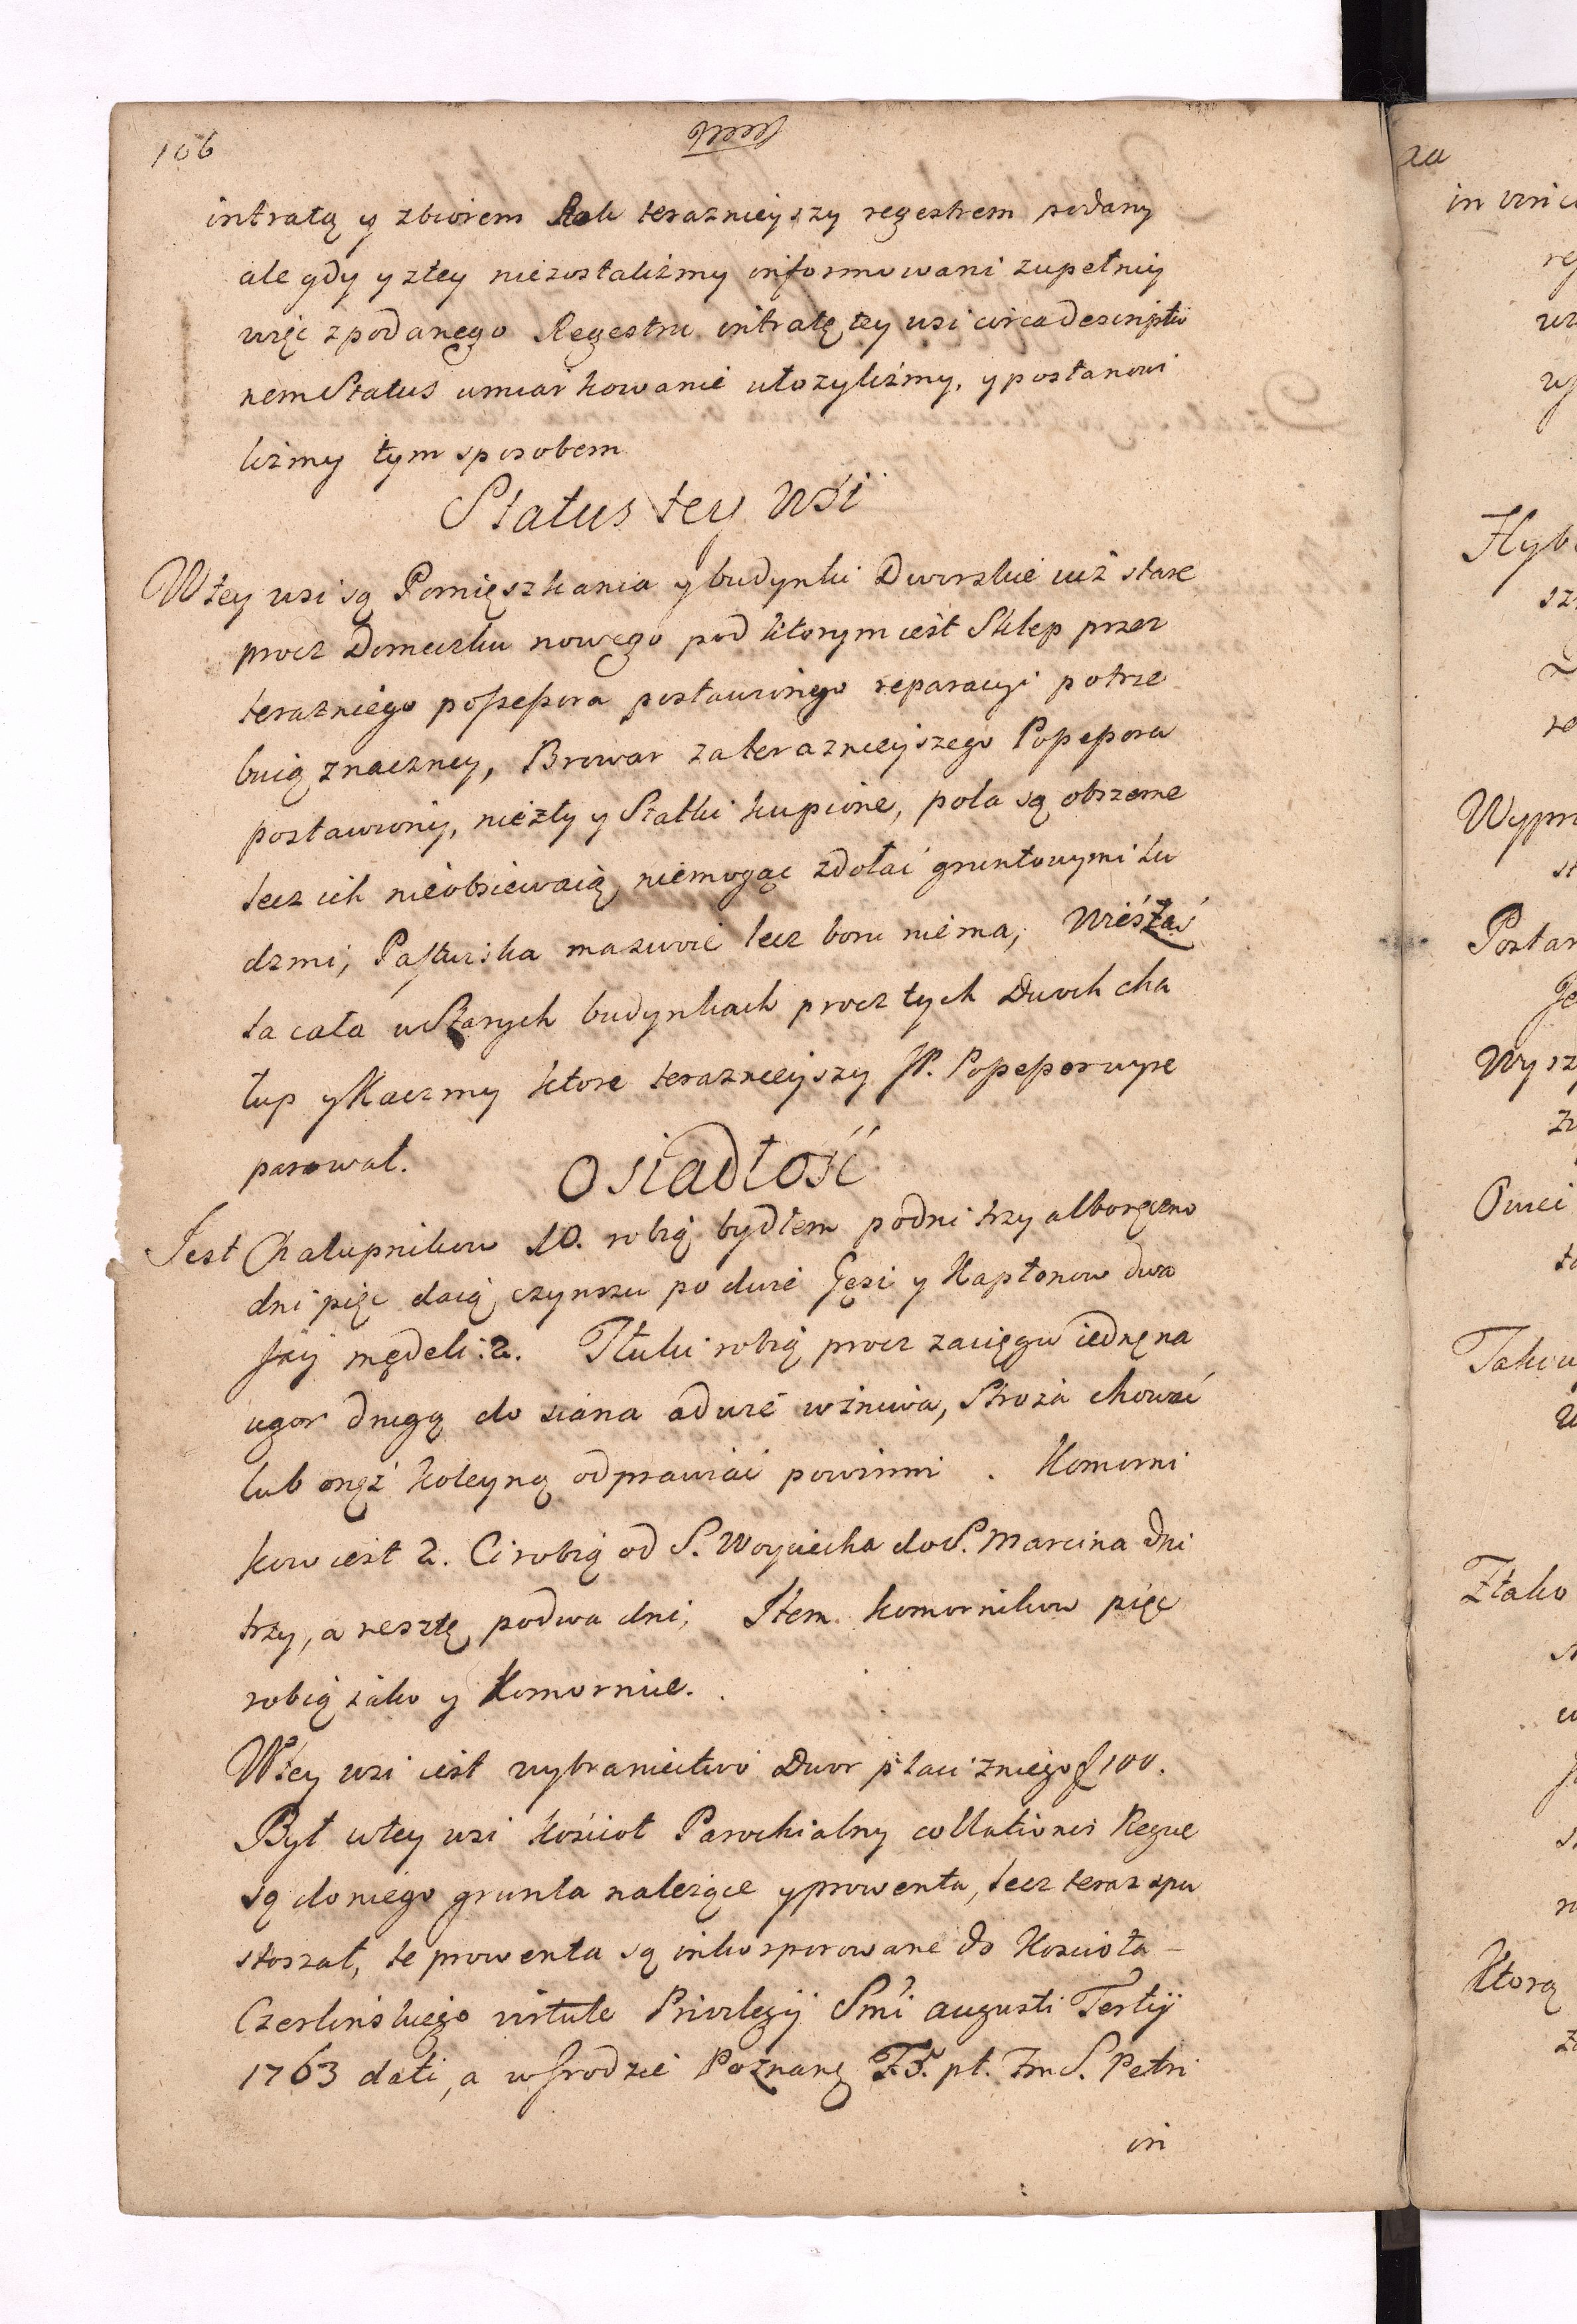 106
intratą y zbiorem Rok terazneyszy regestrem podany
ale gdy y ztey niezostalismy informowani zupełniy
więc zpodanego Regestru intratę tey wsi circa descriptio
nem Status umiarkowanie ułozylismy, y postanowi
lismy tym sposobem
Status tey Wsi
Wtey wsi są Pomięszkania y budynki Dworskie iuż stare
procz Domeczku nowego pod ktorym iest Sklep przez
teraznieg o possessora postawionego reparacyi potrze
buią znaczney, Browar zaterazneyszego Possessora
postawiony, niezły y Statki kupione, pola są obszerne
lecz ich nieobsiewaią, niemogąc zdołać gruntowymi lu
dzmi, Pastwiska maswoie lecz boru niema, Wieś zaś
ta cała wStarych budynkach procz tych Dwoch cha
łup y Karczmy ktore terazneyszy JP. Possessor wyre
parował.
Osiadłość
Jest Chałupnikow 10. robią bydłem podni trzy alboręczno
dni pięć daią czynszu po dwie Gęsi y Kapłonow dwa
Jay mędeli: 2. Tłuki robią procz zaciągu iednę na
ugor drugą do siana adwie wżniwa, Stroża chować
lub onęż koleyną odprawiać powinni. Komorni
kow iest 2. Ci robią od S. Woyciecha doS. Marcina dni
trzy, a resztę podwa dni, Item komornikow pięć
robią iako y Komornice.
Wtey wsi iest wybraniectwo Dwor płaci zniego f 100.
Był wtey wsi kościoł Parochialny collationis Regiae
są doniego grunta należące y prowenta, lecz teraz spu
stoszał, te prowenta są inkorporowane do Kościoła -
Czerlinskiego virtute Privilegij Smi augusti Tertij
1763 dati, a wGrodzie Poznanę F. 5. pt. Fm S. Petri
in